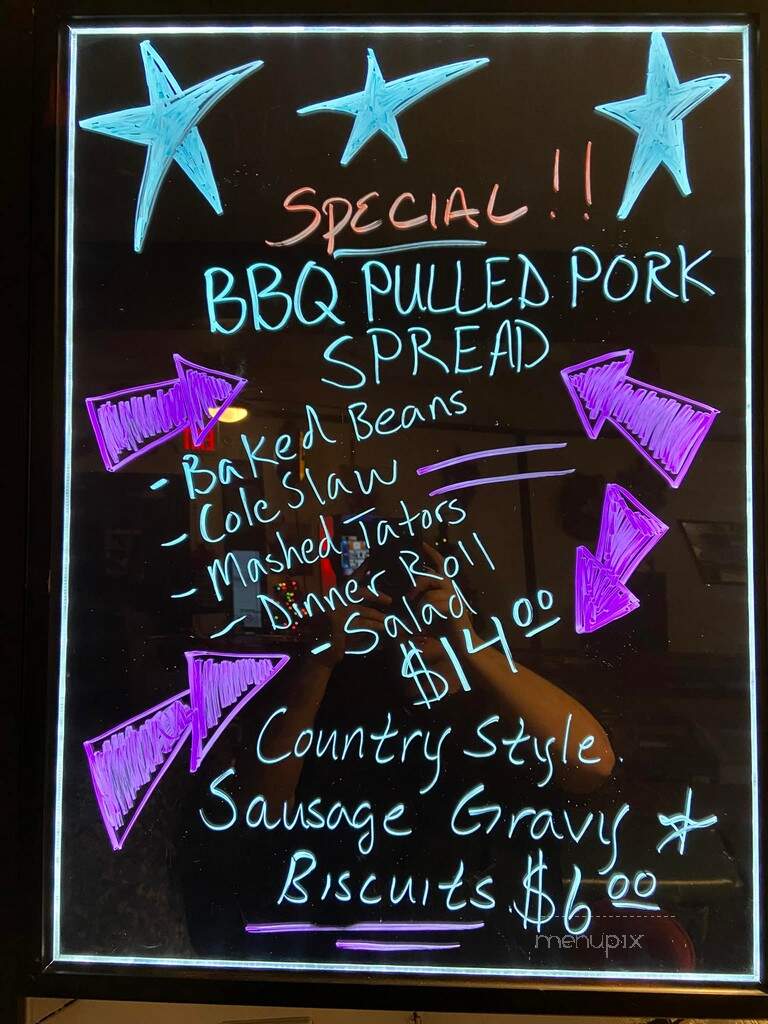 SPECIAL!!
BBQ PULLED PORK
SPREAD
- Baked Beans
- Cole Slaw
- Mashed Tators
- Dinner Roll
- Salad
$14.00
Country Style
Sausage Gravy &
Biscuits $6.00
menupix